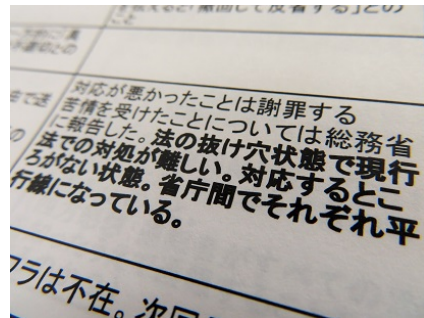 を伝えると「撤回して反省する」との
こと
不適切との
由で送
の
対応が悪かったことは謝罪する
苦情を受けたことについては総務省
に報告した。法の抜け穴状態で現行
法での対処が難しい。対応するとこ
ろがない状態。省庁間でそれぞれ平
行線になっている。
フラは不在。次回